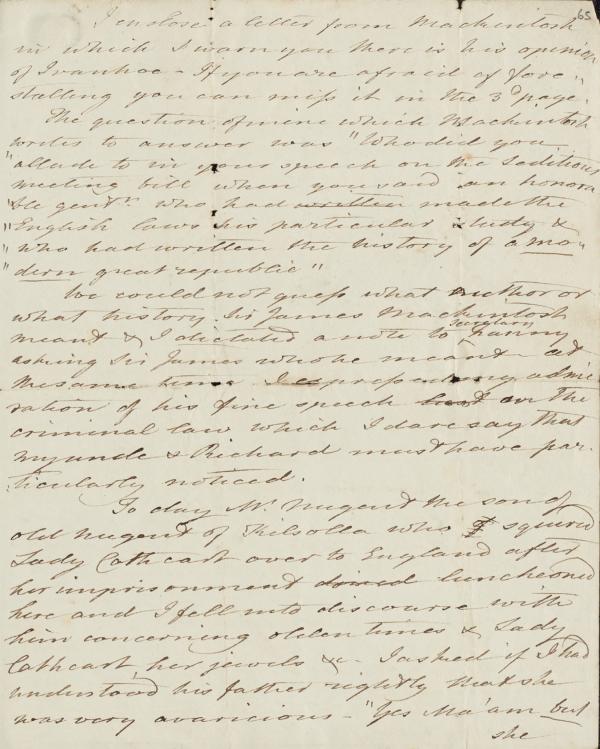 65
I enclose a letter from Mackintosh
in which I warn you there is his opinion
of Ivanhoe - If you are afraid of fore,,
stalling you can miss it in the 3d page.
The question of mine which Mackintosh
writes to answer was "Who did you
"allude to in your speech on the Seditious
meeting bill when you said an honora
"ble gentn. who had written made the
"English laws his particular study &
"who had written the history of a mo,,
"dern great republic"
We could not guess what author or
what history Sir James Mackintosh
meant & I dictated a note to Secretary Fanny
asking Sir James who he meant - at
the same time expressing my admi
ration of his fine speech on the
criminal law which I dare say that
my uncle & Richard must have par.
ticularly noticed.
To day Mr. Nugent the son of
old Nugent of Kilsolla who squired
Lady Cathcart over to England after
her imprisonment dined luncheoned
here and I fell into discourse with
him concerning olden times & Lady
Cathcart her jewels &c - I asked if I had
understood his father rightly that she
was very avaricious - "Yes Ma'am but
she